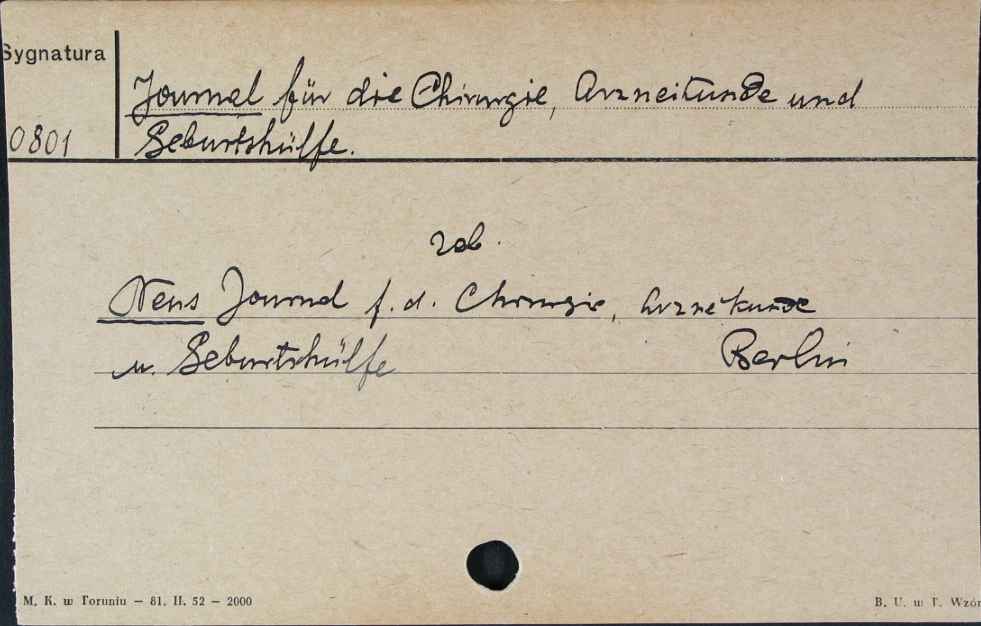 Sygnatura
Journal für die Chirurgie, Arzneikunde und
0801
Geburtshülfe.
zob.
Neus Journal f. d. Chirurgie, Arzneikunde
u. Geburtshülfe Berlin
M. K. w Toruniu — 81. II. 52 — 2000
B. U. w T. Wzór